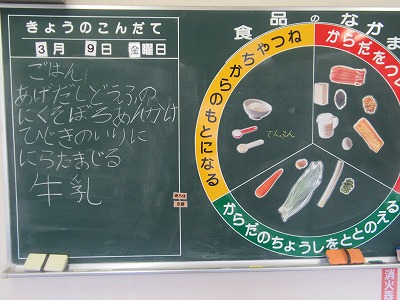 きょうのこんだて
3月 9日 金曜日
ごはん
あげだしどうふの
にくそぼろあんかけ
ひじきのいりに
にらたまじる
牛乳
食品のなかま
ちやからのもとになる
でんぷん
からだのちょうしをととのえる
消火器